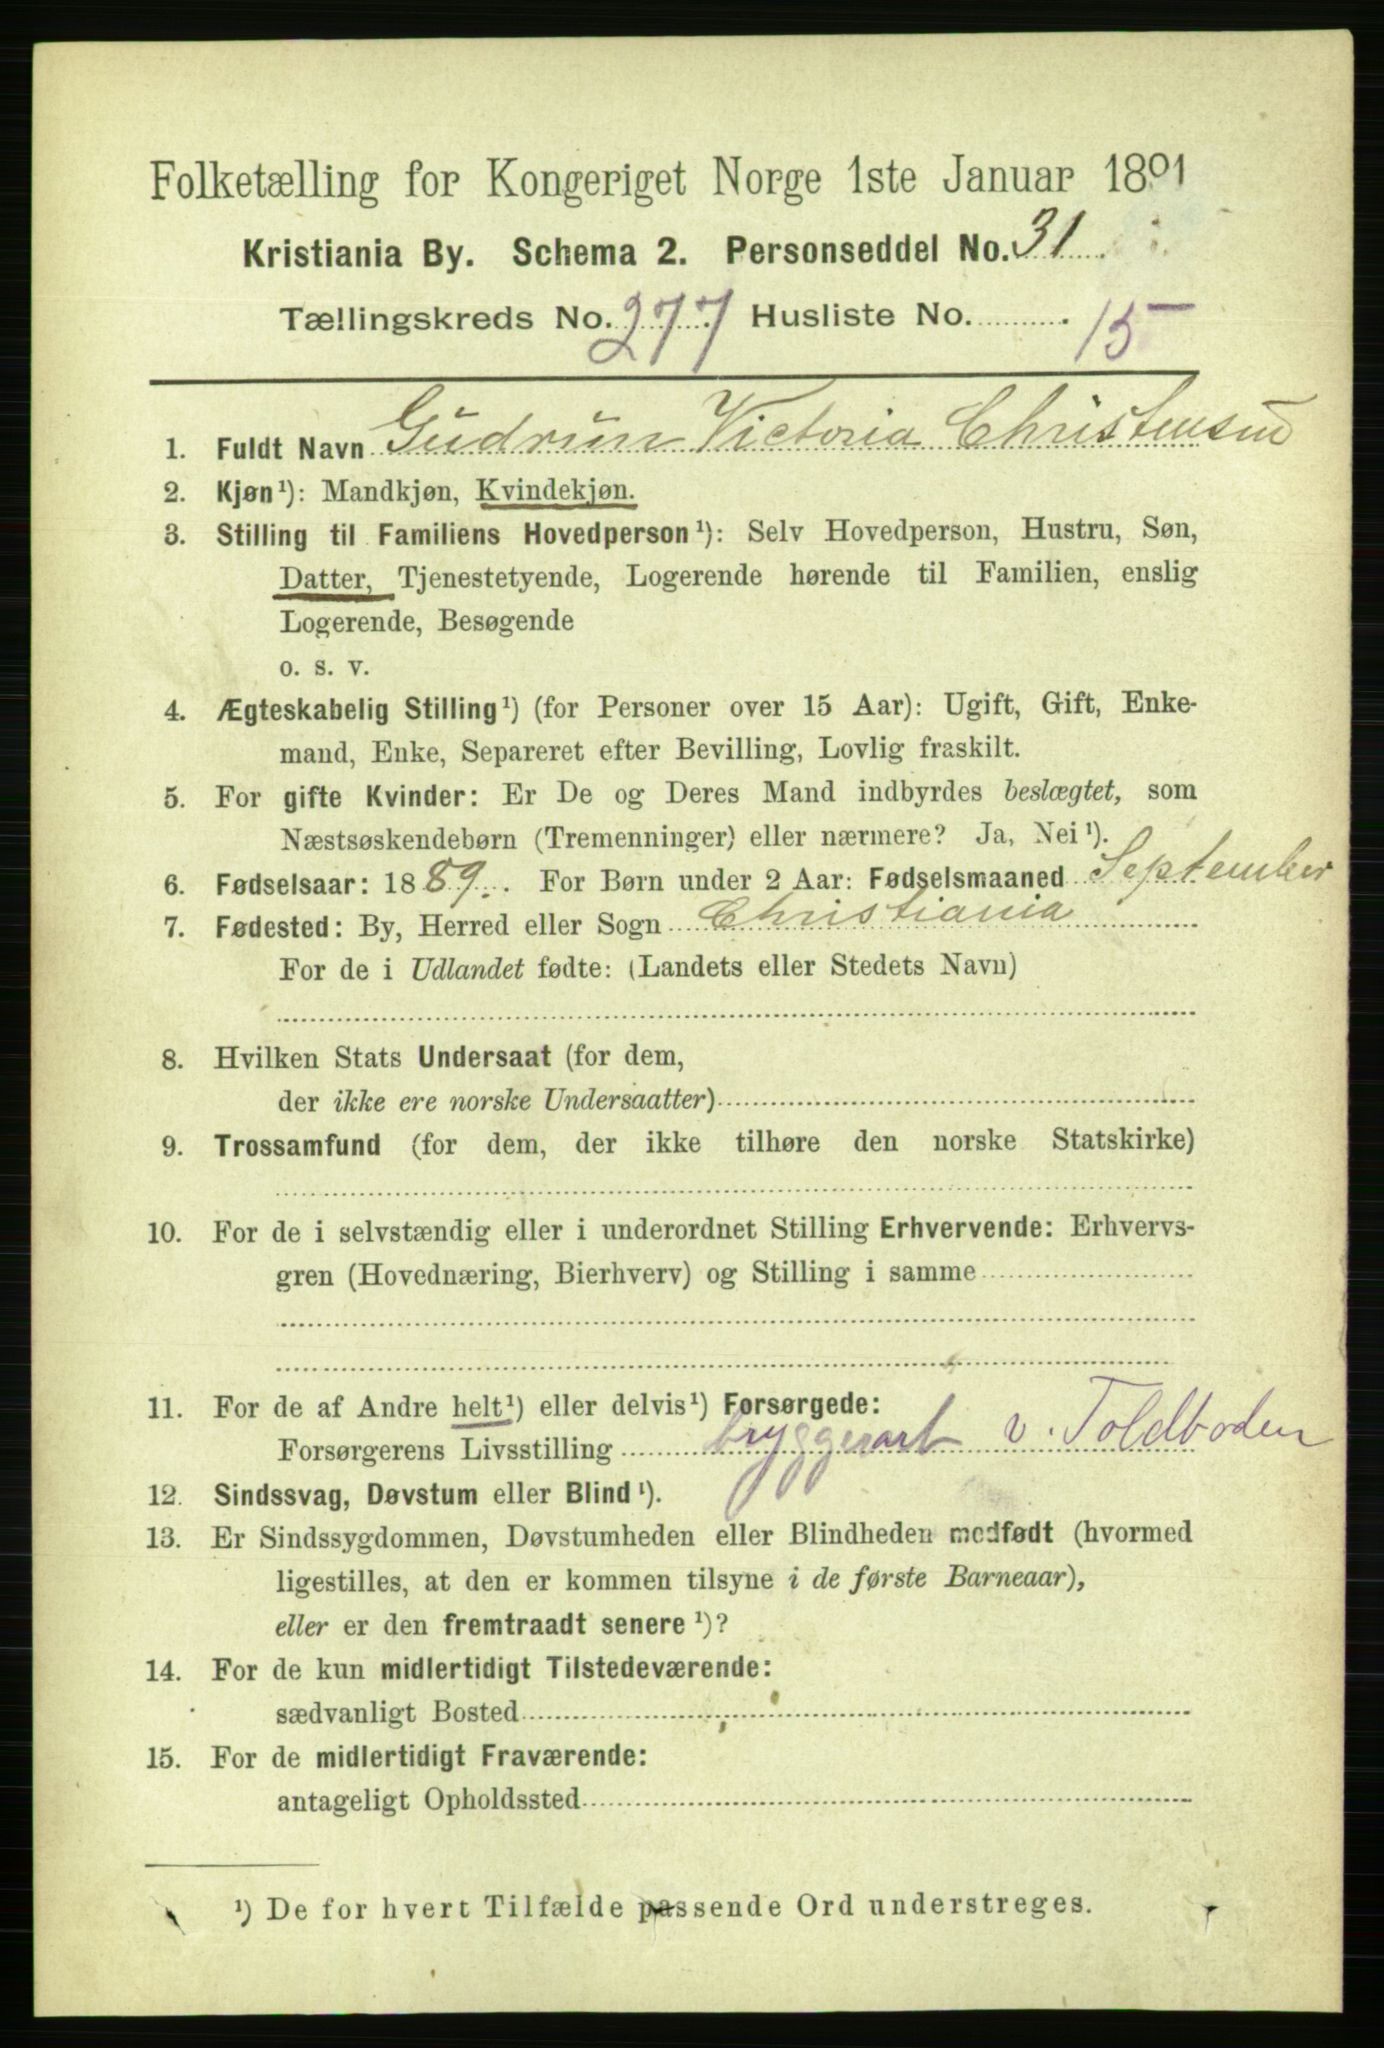 Folketælling for Kongeriget Norge 1ste Januar 1891
Kristiania By. Schema 2. Personseddel No. 31
Tællingskreds No. 277 Husliste No. 15
1. Fuldt Navn Gudrun Victoria Christensen
2. Kjøn¹): Mandkjøn, Kvindekjøn.
3. Stilling til Familiens Hovedperson¹): Selv Hovedperson, Hustru, Søn,
Datter, Tjenestetyende, Logerende hørende til Familien, enslig
Logerende, Besøgende
o. s. v.
4. Ægteskabelig Stilling¹) (for Personer over 15 Aar): Ugift, Gift, Enke-
mand, Enke, Separeret efter Bevilling, Lovlig fraskilt.
5. For gifte Kvinder: Er De og Deres Mand indbyrdes beslægtet, som
Næstsøskendebørn (Tremenninger) eller nærmere? Ja, Nei¹).
6. Fødselsaar: 1889. For Børn under 2 Aar: Fødselsmaaned September
7. Fødested: By, Herred eller Sogn Christiania
For de i Udlandet fødte: (Landets eller Stedets Navn)
8. Hvilken Stats Undersaat (for dem,
der ikke ere norske Undersaatter)
9. Trossamfund (for dem, der ikke tilhøre den norske Statskirke)
10. For de i selvstændig eller i underordnet Stilling Erhvervende: Erhvervs-
gren (Hovednæring, Bierhverv) og Stilling i samme
11. For de af Andre helt¹) eller delvis¹) Forsørgede:
Forsørgerens Livsstilling bryggearb v. Toldboden
12. Sindssvag, Døvstum eller Blind¹).
13. Er Sindssygdommen, Døvstumheden eller Blindheden medfødt (hvormed
ligestilles, at den er kommen tilsyne i de første Barneaar),
eller er den fremtraadt senere¹)?
14. For de kun midlertidigt Tilstedeværende:
sædvanligt Bosted
15. For de midlertidigt Fraværende:
antageligt Opholdssted
¹) De for hvert Tilfælde passende Ord understreges.